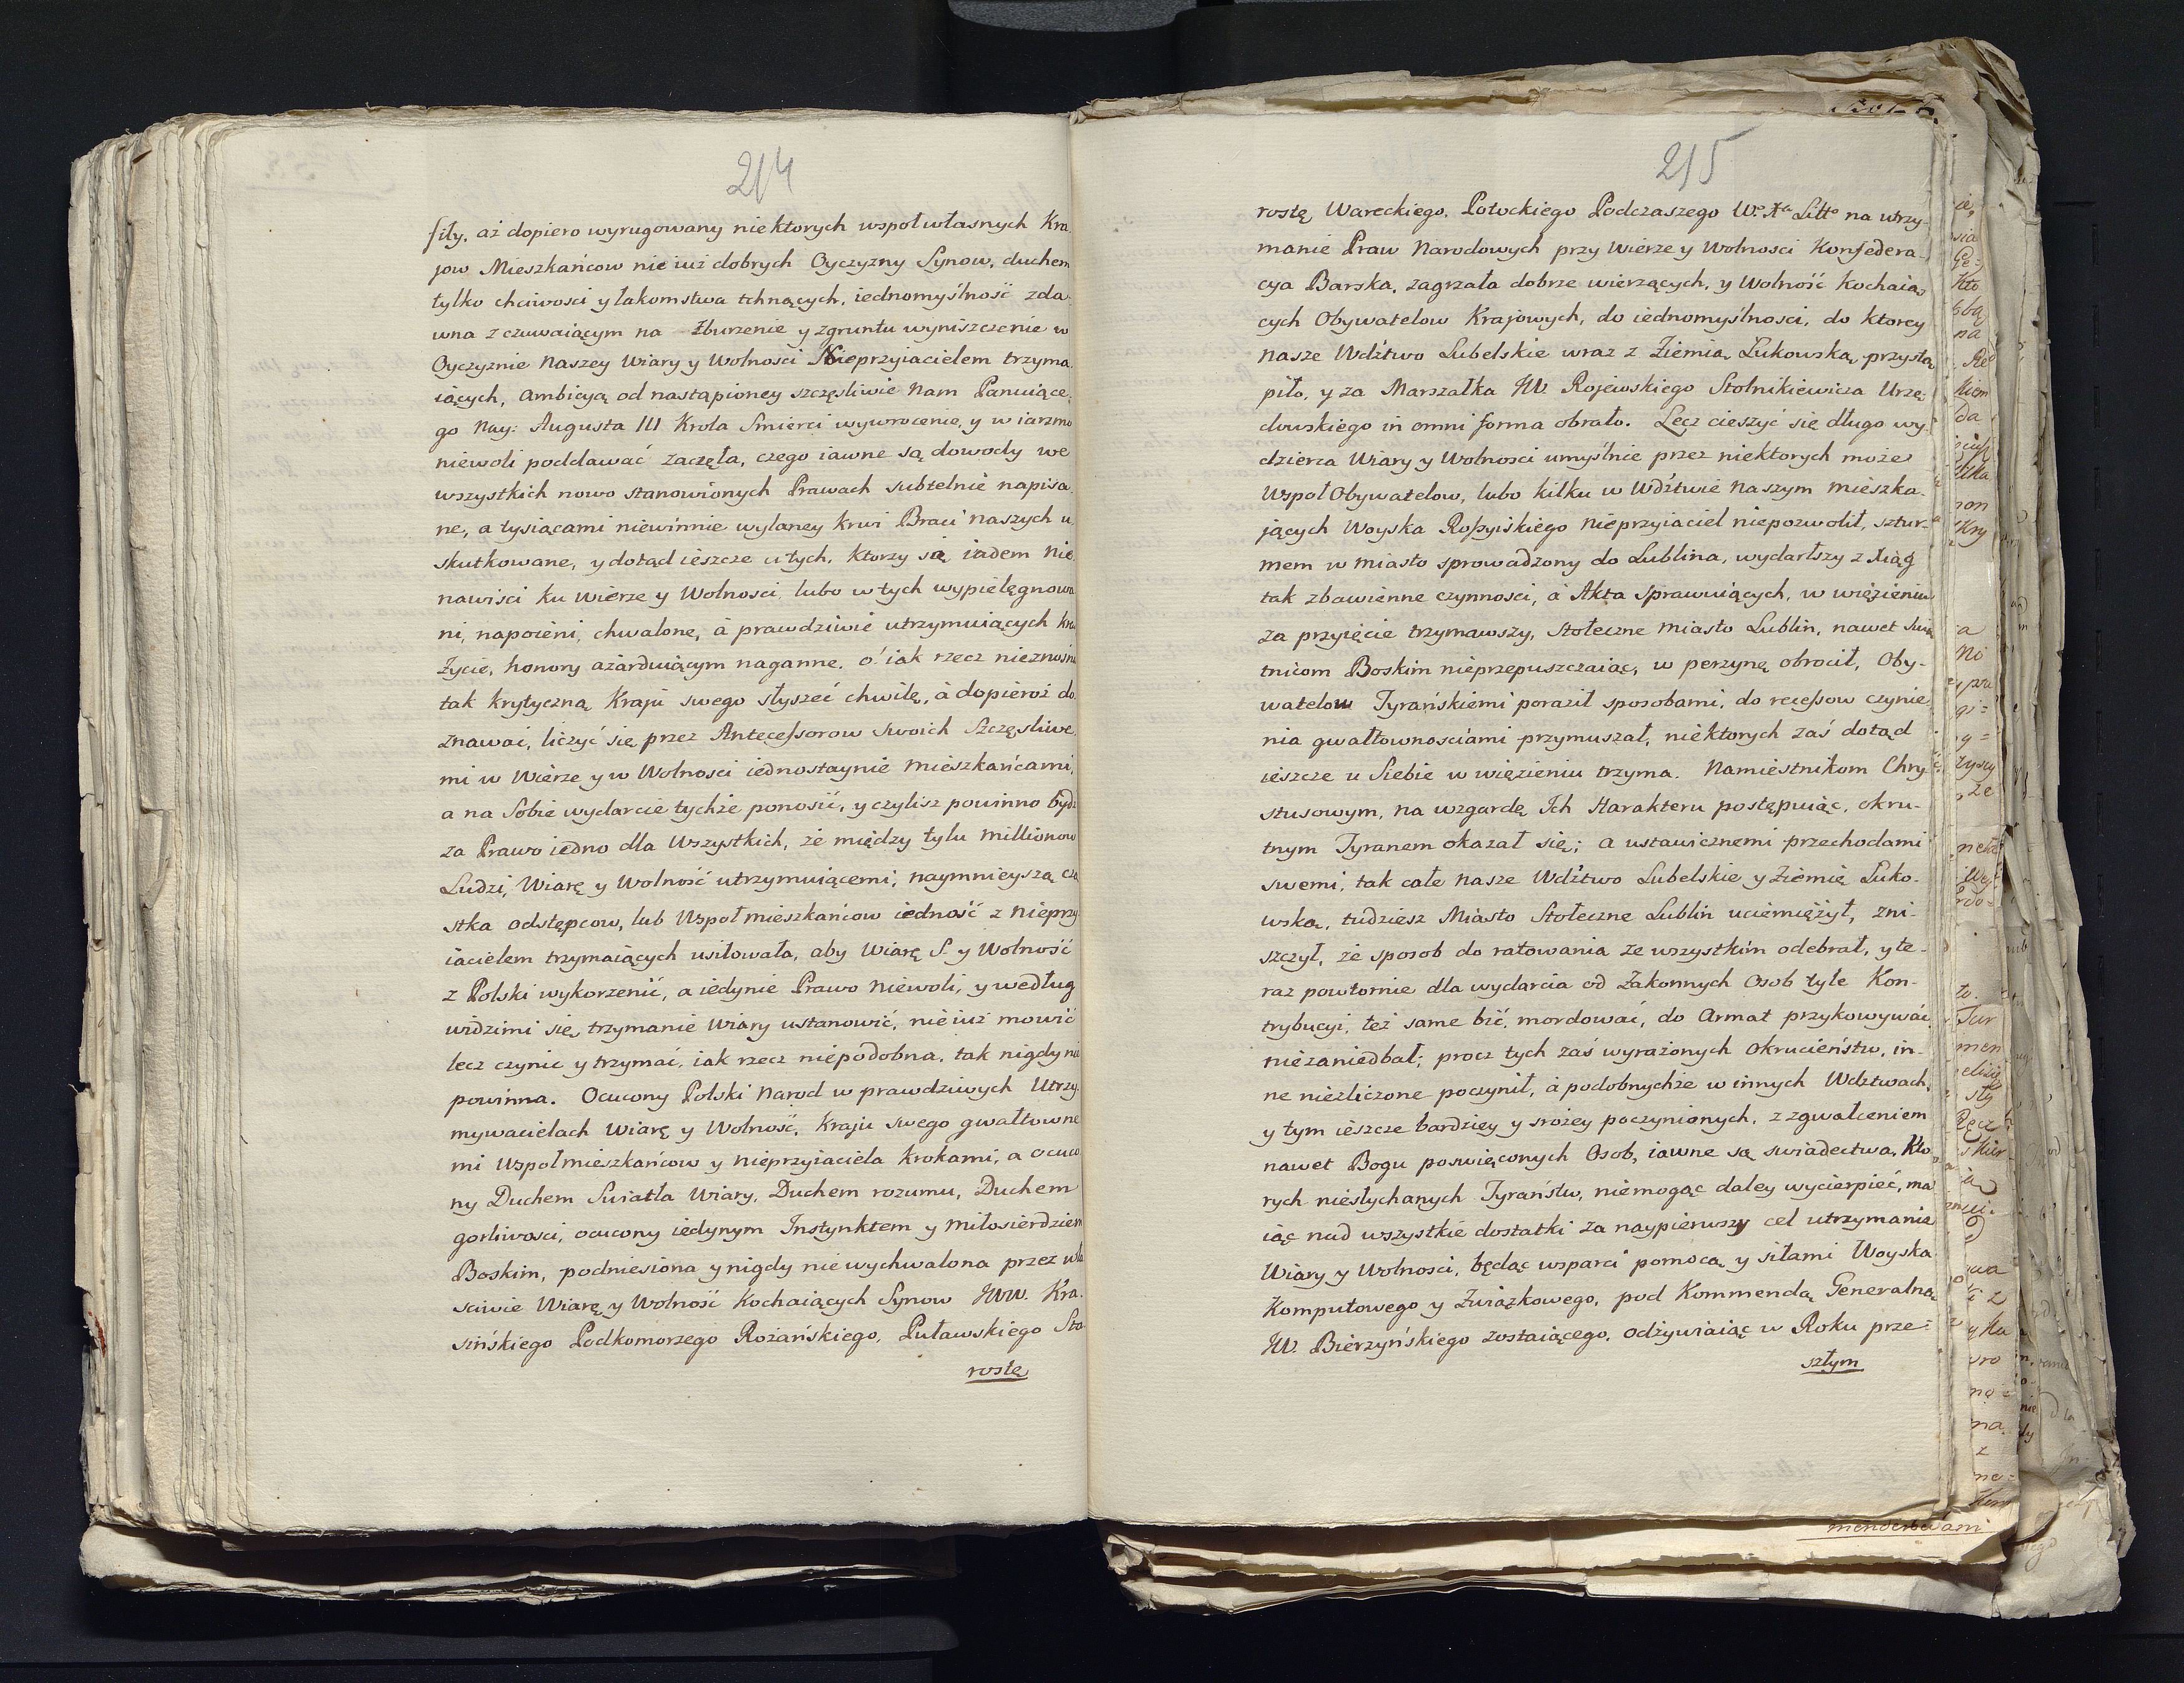 214
siły, aż dopiero wyrugowany niektorych wspoł własnych Kra
jow Mieszkańcow nie iuż dobrych Oyczyzny Synow, duchem
tylko chciwosci y łakomstwa tchnących, iednomyślność zda
wna z czuwaiącym na Zburzenie y zgruntu wyniszczenie w
Oyczyznie Naszey Wiary y Wolnosci Nieprzyiacielem trzyma
iących, ambicyą od nastąpioney szczęsliwie Nam Panuiące
go Nay: Augusta III Krola Smierci wywrocenie, y w iarzmo
niewoli poddawać zaczęła, czego iawne są dowody we
wszystkich nowo stanowionych Prawach subtelnie napisa
ne, a tysiącami niewinnie wylaney krwi Braci naszych u
skutkowane, y dotąd ieszcze u tych, ktorzy są iadem nie
nawisci ku Wierze y Wolnosci, lubo w tych wypielęgnowa
ni, napoieni, chwalone, à prawdziwie utrzymuiących
Zycie, honory azarduiącym naganne. o! iak rzecz nieznośna
tak krytyczną Kraju swego słyszeć chwilę, à dopieroż do
znawać, liczyć się przez Antecessorow swoich Szczęsliwe
mi w Wierze y w Wolnosci iednostaynie Mieszkańcami,
a na Sobie wydarcie tychże ponosić, y czylisz powinno bydz
za Prawo iedno dla Wszystkich, że między tylu Millionow
Ludzi, Wiarę y Wolność utrzymuiącemi, naymnieyszą czą
stka odstępcow, lub Wspołmieszkańcow iedność z nieprzy
iacielem trzymaiących usiłowała, aby Wiarę S. y Wolność
z Polski wykorzenić, a iedynie Prawo Niewoli, y według
widzimi się, trzymanie Wiary ustanowić, nie iuż mowić
lecz czynić y trzymać, iak rzecz niepodobna, tak nigdy nie
powinna. Ocucony Polski Narod w prawdziwych Utrzy
mywacielach Wiarę y Wolność, Kraju swego gwałtowne
mi Wspołmieszkańcow y Nieprzyiaciela krokami, a ocuco
ny Duchem Swiatła Wiary, Duchem rozumu, Duchem
gorliwosci, ocucony iedynym Instynktem y Miłosierdziem
Boskim, podniesiona y nigdy nie wychwalona przez wła
sciwie Wiarę y Wolność Kochaiących Synow JWW. Kra
sińskiego Podkomorzego Rożańskiego, Puławskiego Sta
rostę
215
rostę Wareckiego, Potockiego Podczaszego W. X. Litt. na utrzy-
manie Praw Narodowych przy Wierze y Wolnosci Konfedera-
cya Barska, zagrzała dobrze wierzących, y Wolność Kochaią
cych Obywatelow Krajowych, do iednomyślnosci, do ktorey
Nasze Wdztwo Lubelskie wraz z Ziemią Łukowską, przystą
piło, y za Marszałka JW. Rojewskiego Stolnikiewicza Urzę-
dowskiego in omni forma obrało. Lecz cieszyć się długo wy-
dzierca Wiary y Wolnosci umyślnie przez niektorych może
Wspoł Obywatelow, lubo kilku w Wdztwie Naszym mieszka-
jących Woyska Rossyiskiego Nieprzyiaciel niepozwolił, sztur-
mem w miasto sprowadzony do Lublina, wydarłszy z Xiąg
tak zbawienne czynności, à Akta Sprawuiących, w więzieniu
za przyięcie trzymawszy, Stołeczne Miasto Lublin, nawet Swią
tnicom Boskim nieprzepuszczaiąc, w perzynę obrocił, Oby-
watelow Tyrańskiemi poraził sposobami, do recessow czynie
nia gwałtownosciami przymuszał, niektorych zaś dotąd
ieszcze u Siebie w więzieniu trzyma. Namiestnikom Chry-
stusowym, na wzgardę Ich Harakteru postępuiąc, okru-
tnym Tyranem okazał się; a ustawicznemi przechodami
swemi, tak całe nasze Wdztwo Lubelskie y Ziemię Łuko-
wską, tudziesz Miasto Stołeczne Lublin uciemiężył, zni-
szczył, że sposob do ratowania ze wszystkim odebrał, y te-
raz powtornie dla wydarcia od Zakonnych Osob tyle Kon-
trybucyi, też same bić, mordować, do Armat przykowywać
niezaniedbał; procz tych zaś wyrażonych Okrucieństw, in-
ne niezliczone poczynił, à podobnychże w innych Wdztwach,
y tym ieszcze bardziey y srożey poczynionych, z zgwałceniem
nawet Bogu poswięconych Osob, iawne są swiadectwa, Kto
rych niesłychanych Tyraństw, niemogąc daley wycierpieć, ma
iąc nad wszystkie dostatki za naypierwszy cel utrzymanie
Wiary y Wolnosci, będąc wsparci pomocą y siłami Woyska
Komputowego y Związkowego, pod Kommendą Generalną
JW. Bierzyńskiego zostaiącego, odżywiaiąc w Roku prze-
szłym